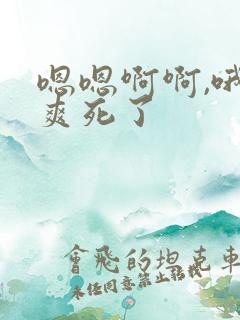 嗯嗯啊啊,哦
爽死了
會飛的坦克車
未经同意禁止转载